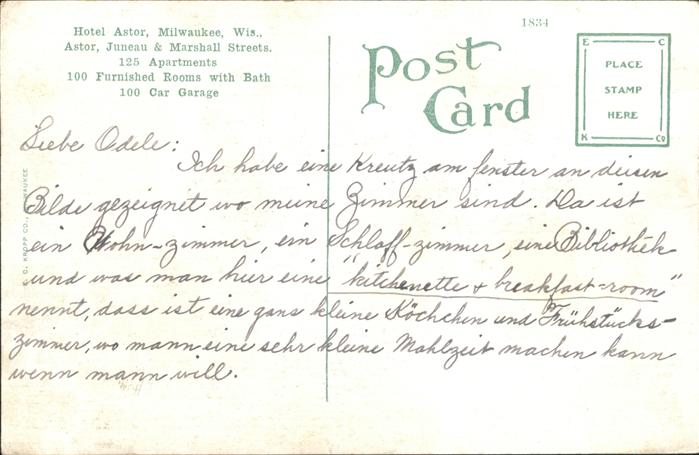 Hotel Astor, Milwaukee, Wis.,
Astor, Juneau & Marshall Streets.
125 Apartments
100 Furnished Rooms with Bath
100 Car Garage
1834
Post
Card
E C
PLACE
STAMP
HERE
K Co
Liebe Odele:
Ich habe eine Kreutz am fenster an diesen
Bilde gezeignet wo meine Zimmer sind. Da ist
ein Wohn-zimmer, ein Schlaff-zimmer, eine Bibliothek
und was man hier eine "kitchenette & breakfast-room"
nennt, dass ist eine gans kleine Köchchen und Frühstücks-
zimmer, wo mann eine sehr kleine Mahlzeit machen kann
wenn mann will.
E. C. KROPP CO., MILWAUKEE